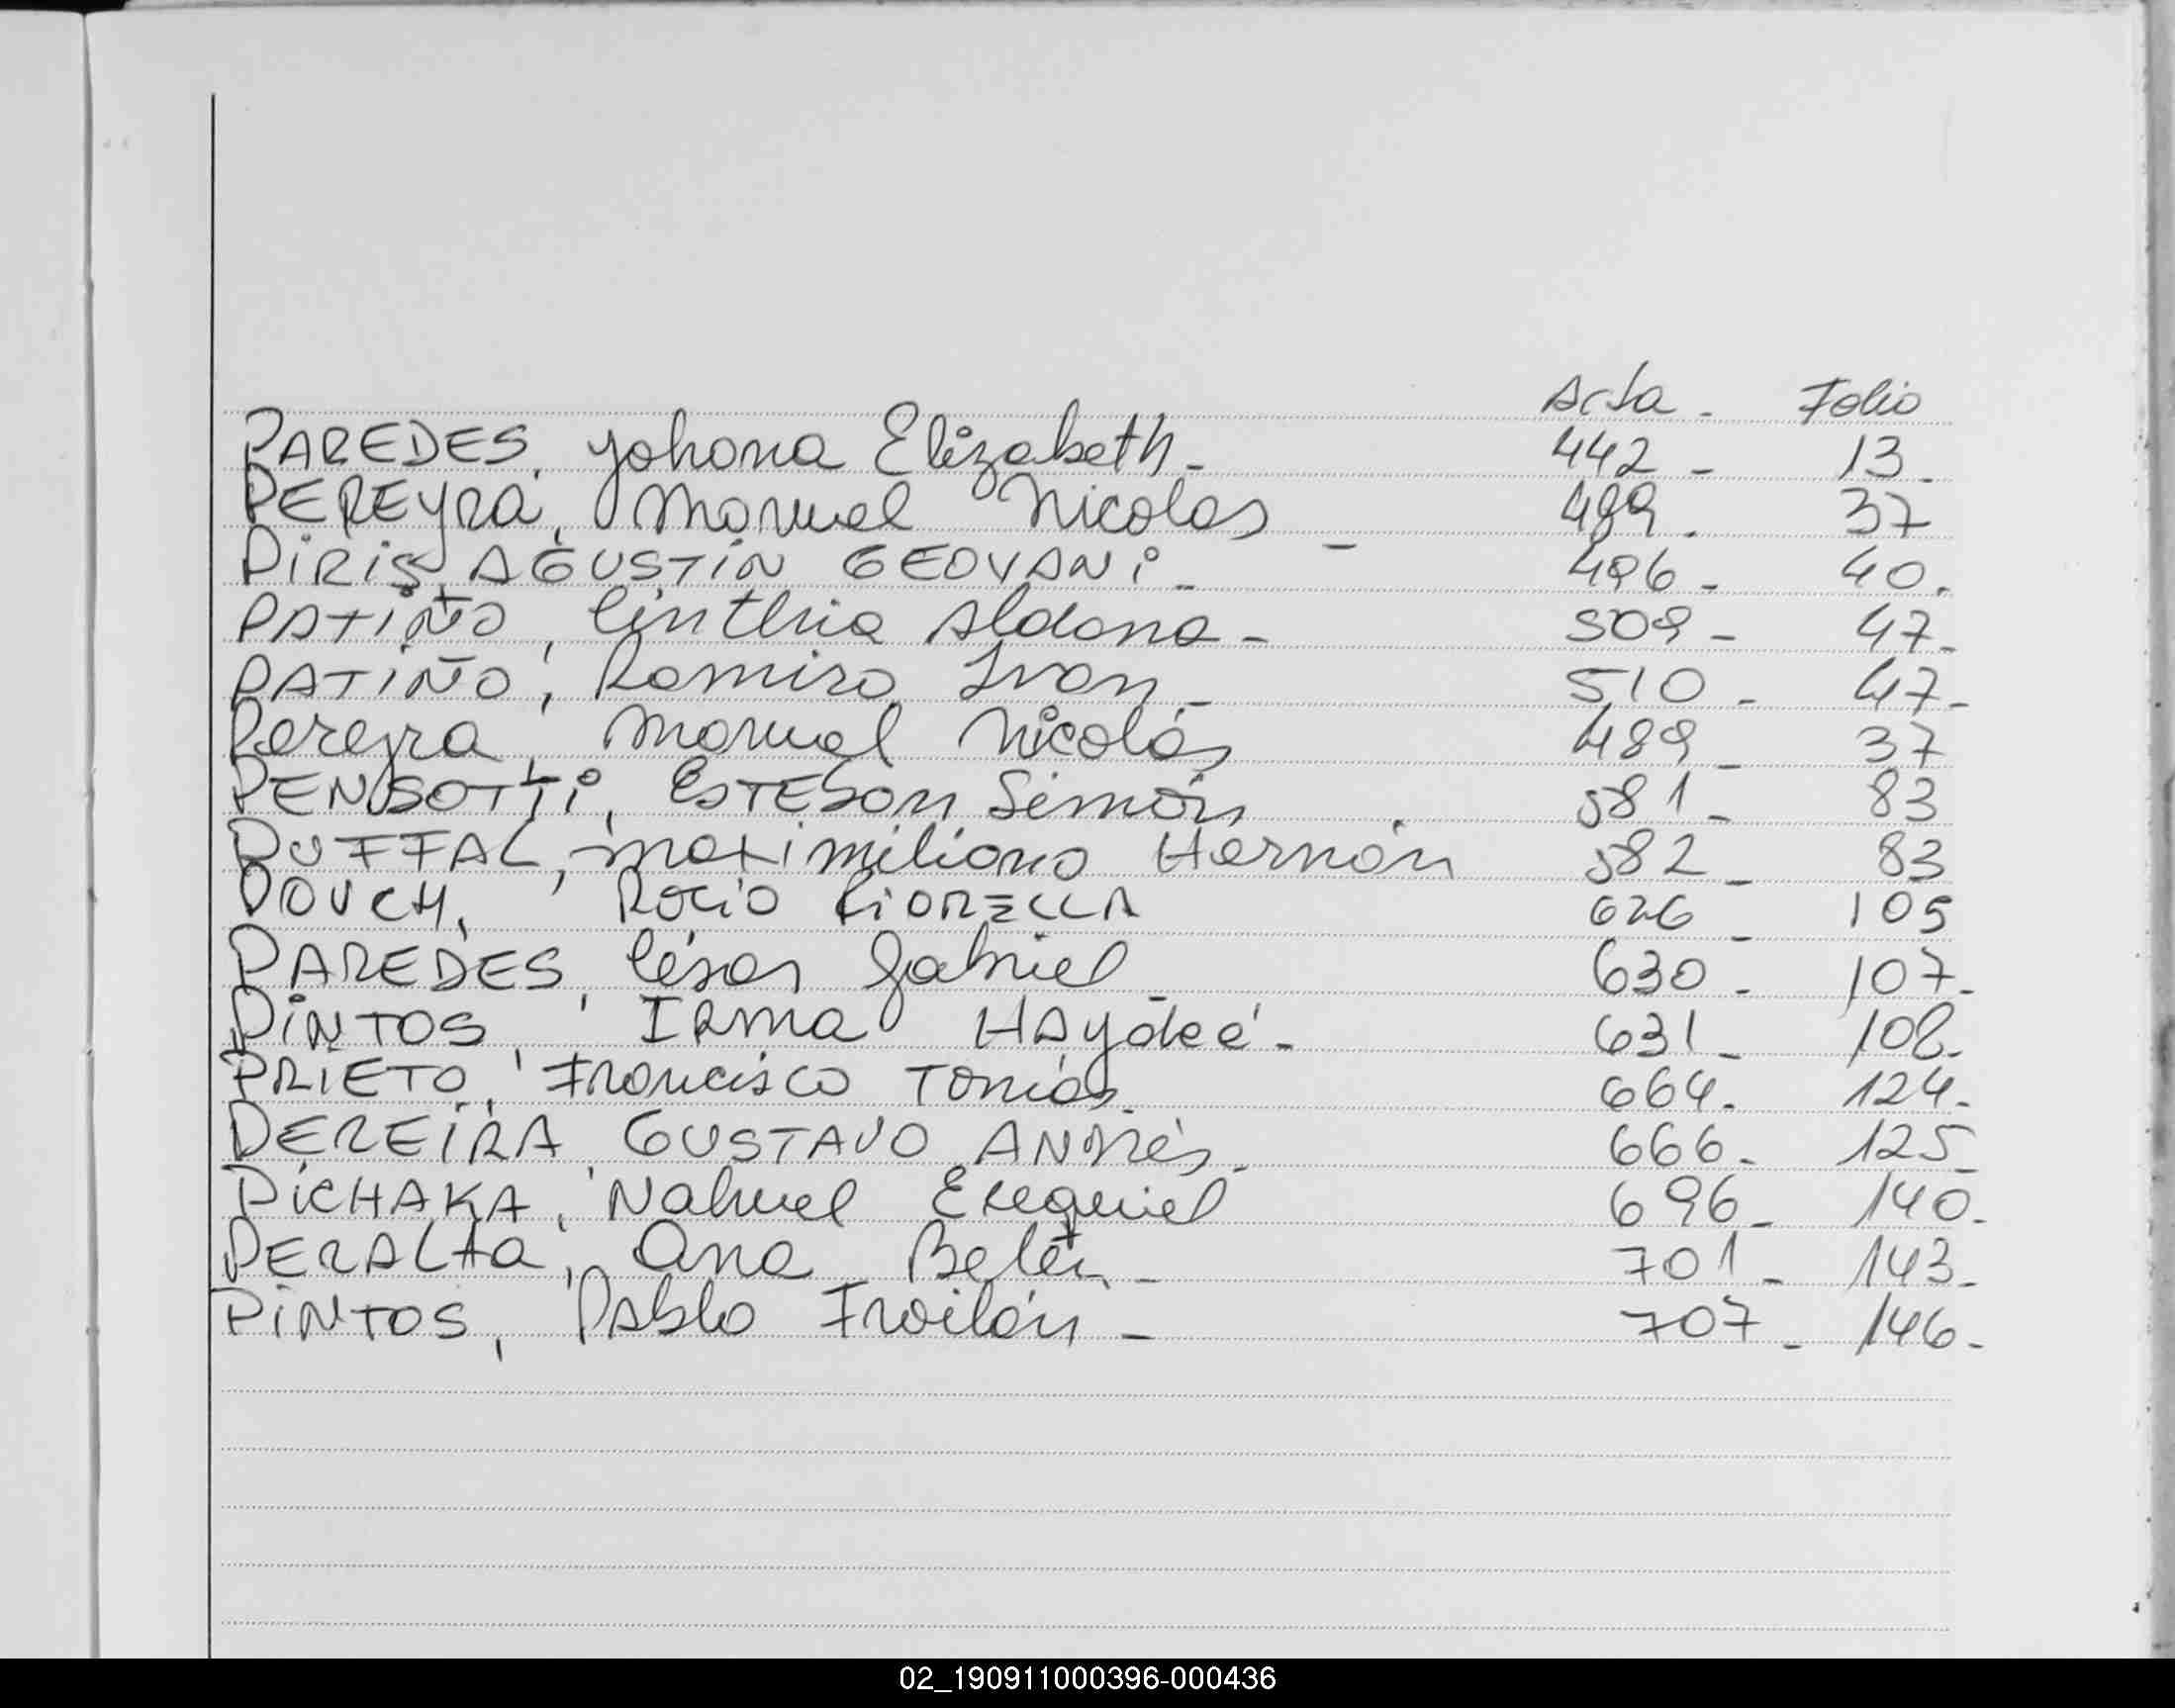 Acta - Folio
PAREDES, Yohona Elizabeth - 442 - 13 -
PEREYRA, Manuel Nicolas - 489 - 37
PIRIS, AGUSTIN GEOVANI - 496 - 40.
PATIÑO, Cinthia Aldana - 509 - 47 -
PATIÑO, Ramiro Ivan - 510 - 47 -
Pereyra, Manuel Nicolás 489 - 37
PENSOTTI, ESTEBAN Simón 581 - 83
PUFFAL, Maximiliano Hernán 582 - 83
POUCH, ROCIO FIORELLA 626 - 105
PAREDES, César Gabriel - 630 - 107 -
PINTOS, IRMA HAYdeé - 631 - 108 -
PRIETO, Francisco Tomás - 664 - 124 -
PEREIRA, GUSTAVO ANDRÉS - 666 - 125 -
PICHAKA, Nahuel Exequiel 696 - 140 -
PERALTA, Ana Belén - 701 - 143 -
PINTOS, Pablo Froilán - 707 - 146 -
02_190911000396-000436